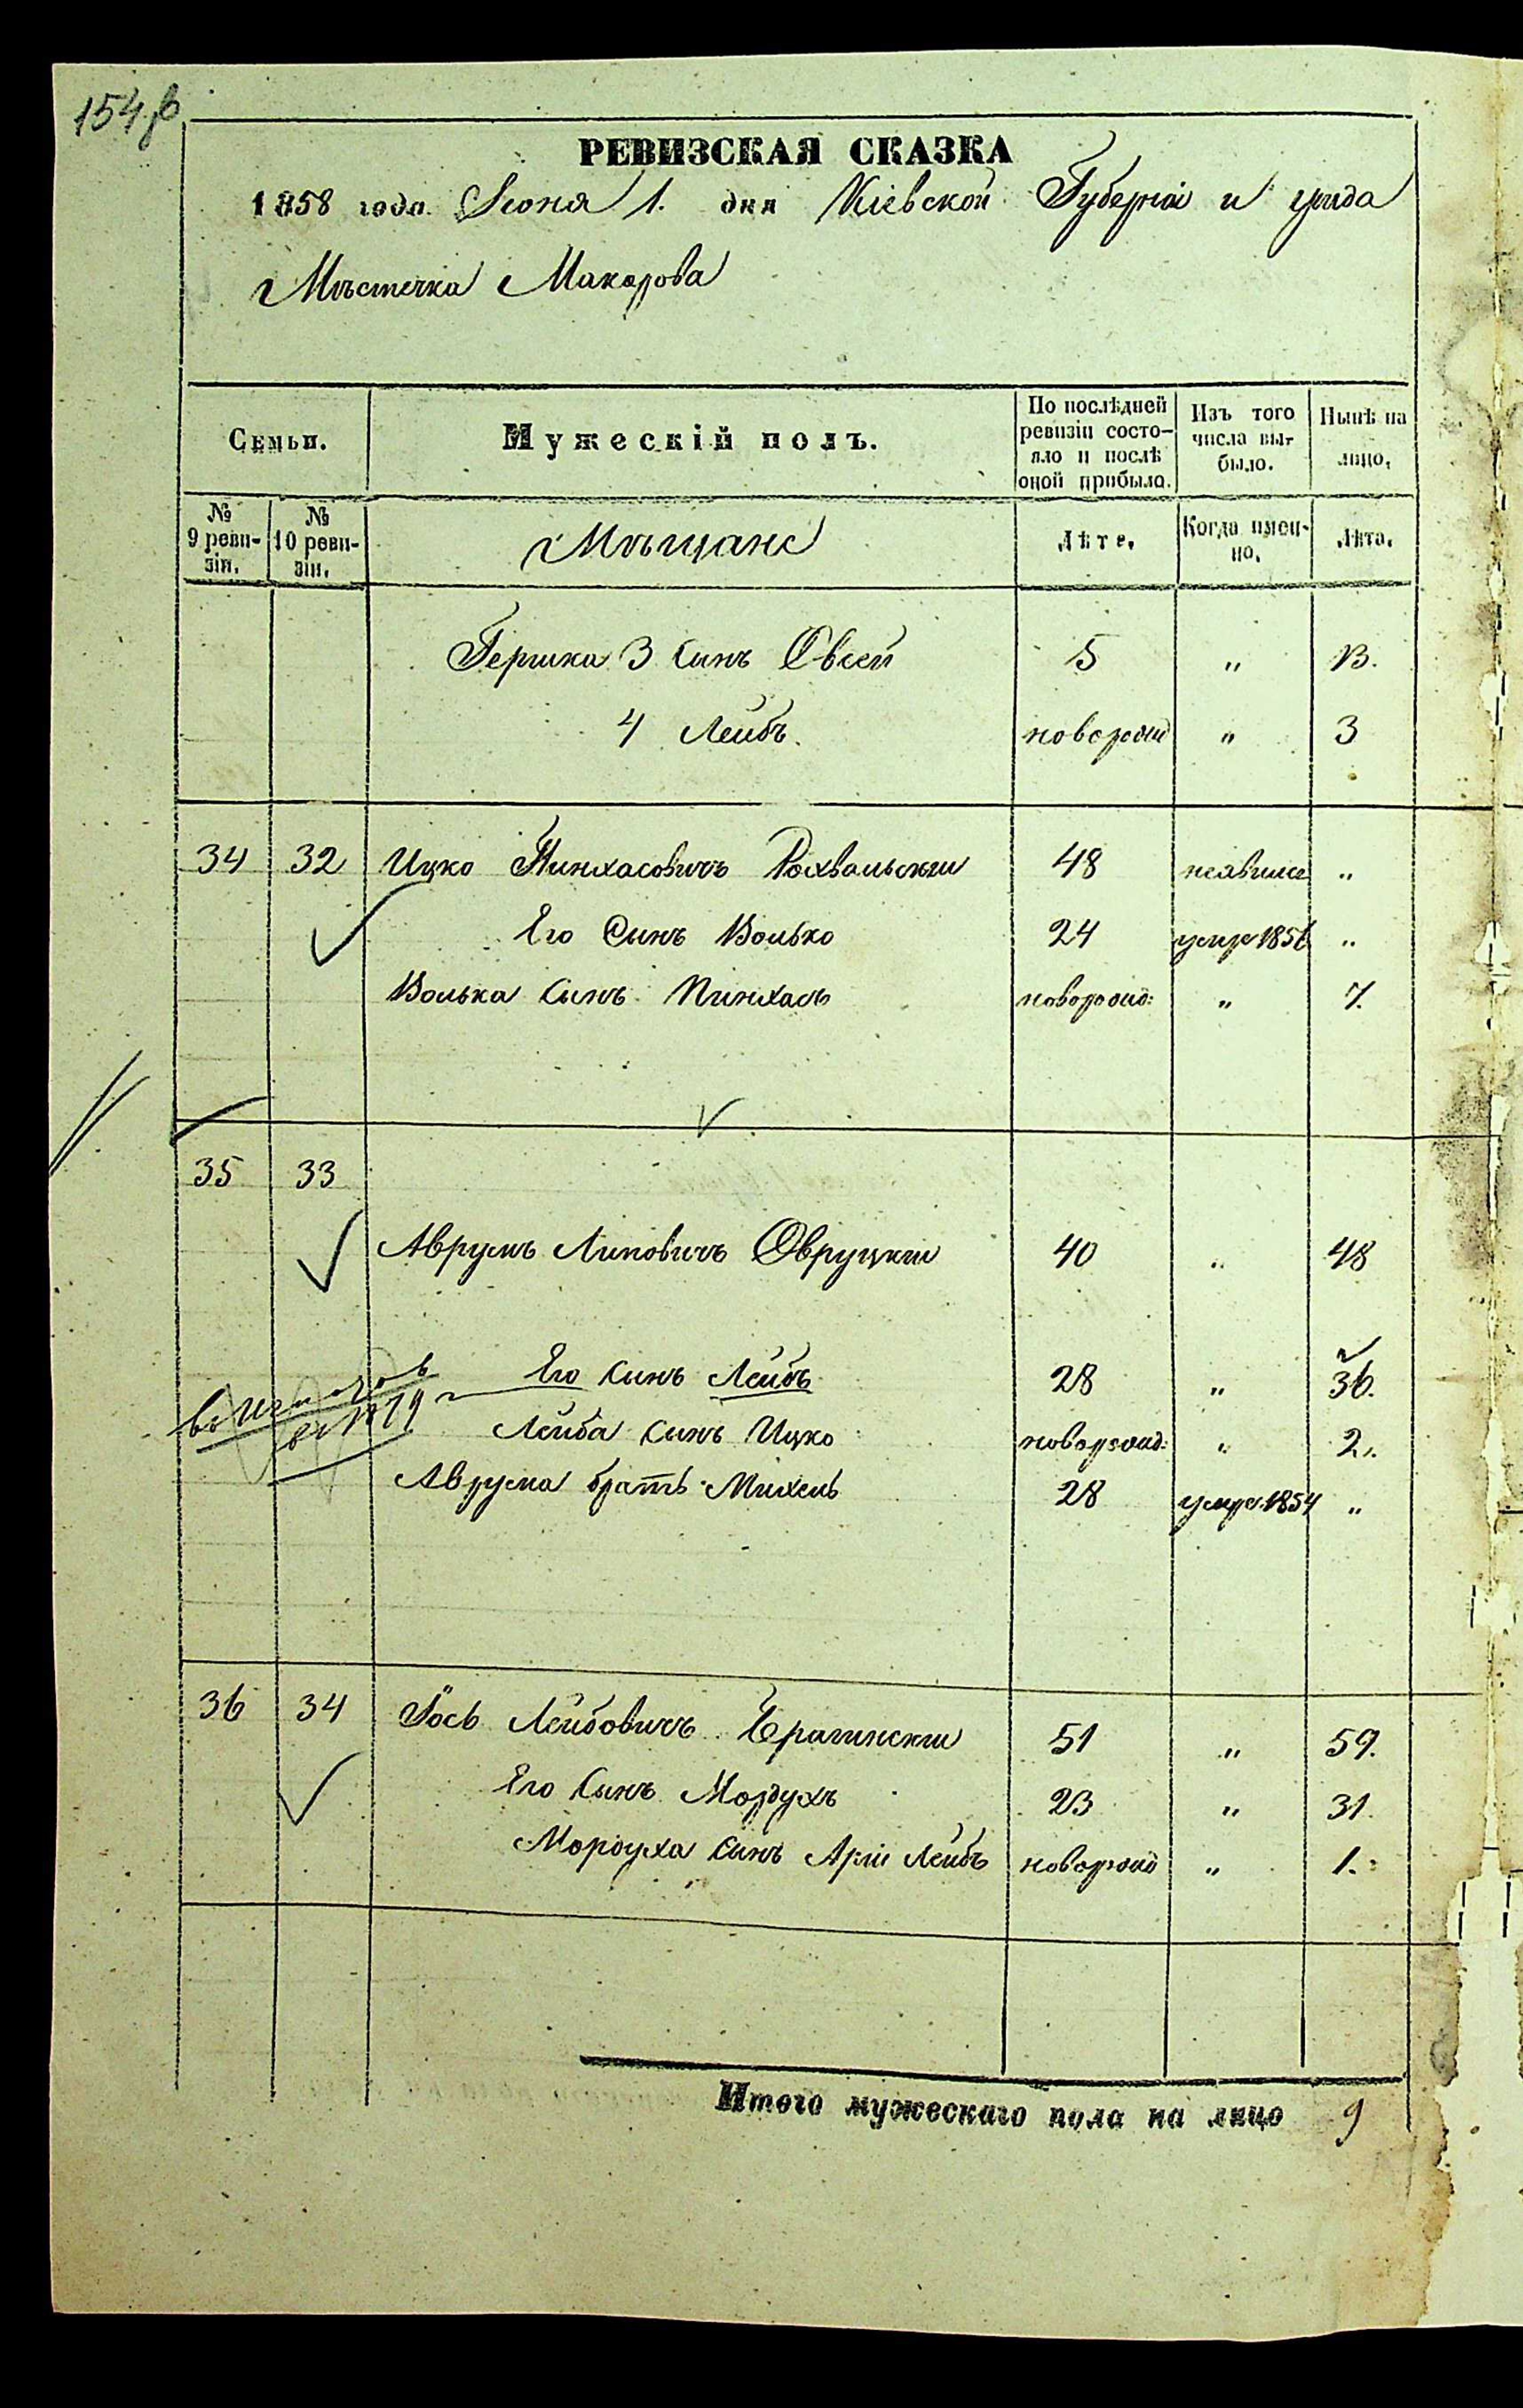 154 об
РЕВИЗСКАЯ СКАЗКА
1858 года Июня 1. дня Кіевской Губерніи и уѣзда
Мѣстечка Макарова
Семьи. Мужескій полъ. По послѣдней ревизіи состояло и послѣ оной прибыло. Изъ того числа выбыло. Нынѣ на лицо.
№ 9 ревизіи. № 10 ревизіи. Мѣщане Лѣта. Когда именно. Лѣта.
Гершка 3 Сынъ Овсей 5 " 13.
4 Лейбъ. новорожд " 3
34 32 Ицко Пинхасовичъ Рохвальскій 48 неявился "
Его Сынъ Волько 24 умеръ 1856 "
Волька Сынъ Пинхасъ новорожд: " 7.
35 33
Аврумъ Липовичъ Овруцкій 40 " 48
Его Сынъ Лейбъ 28 " 36.
Лейба Сынъ Ицко новорожд: " 2.
Аврума братъ Михель 28 умеръ 1854 "
36 34 Іось Лейбовичъ Брагинскій 51 " 59.
Его Сынъ Мордухъ 23 " 31.
Мордуха Сынъ Арія Лейбъ новорожд " 1.
Итого мужескаго пола на лицо 9